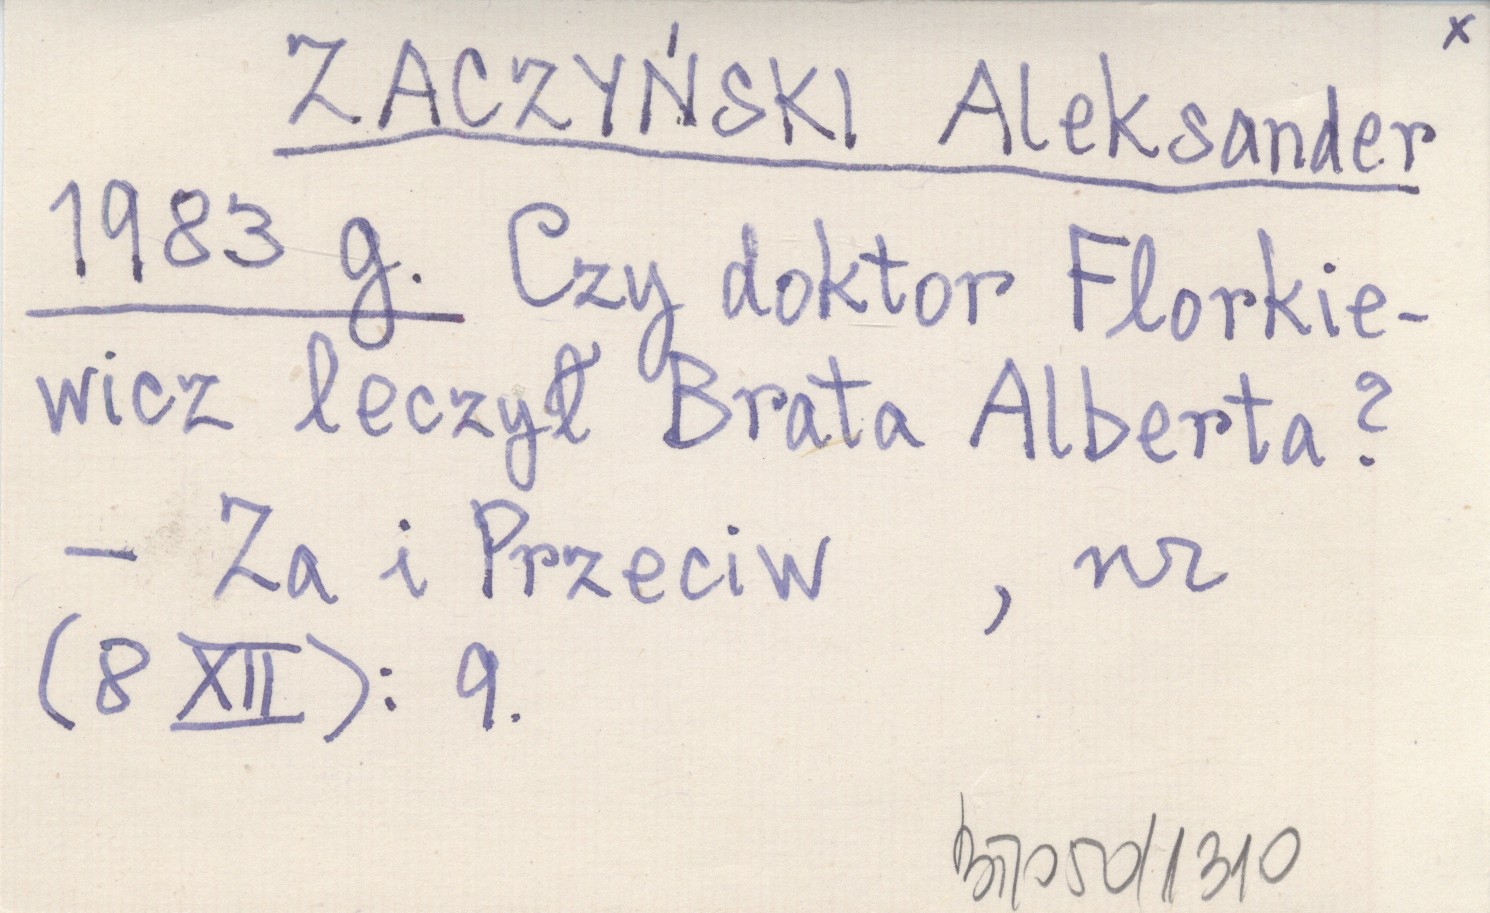 x
ZACZYŃSKI Aleksander
1983 g. Czy doktor Florkie-
wicz leczył Brata Alberta?
- Za i Przeciw , nr
(8 XII): 9.